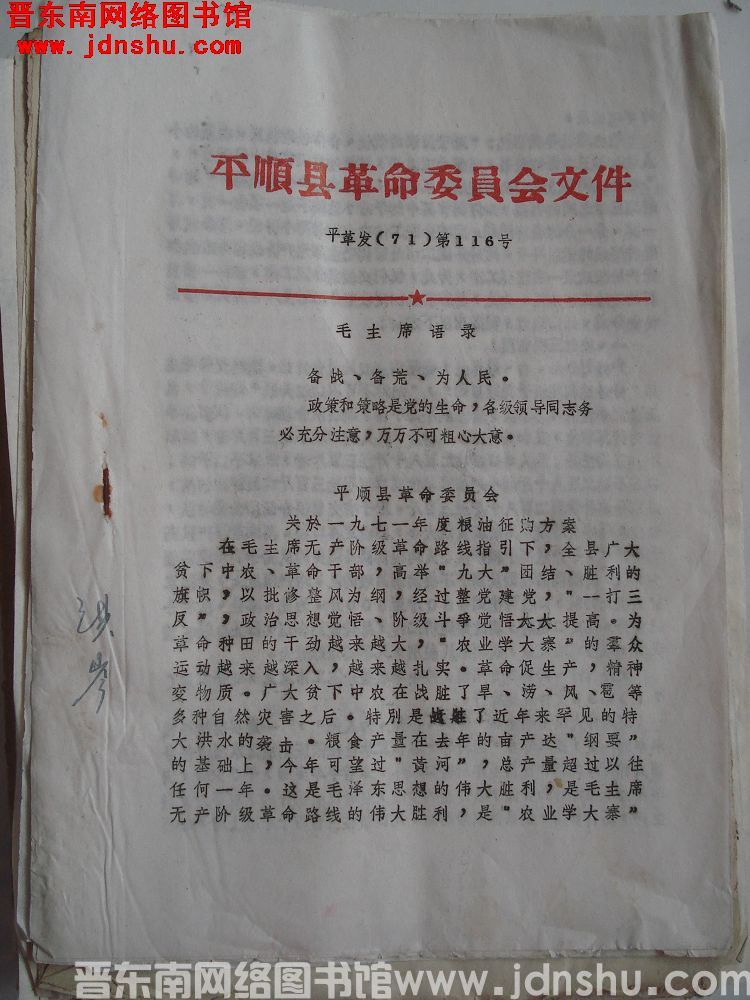 晋东南网络图书馆
www.jdnshu.com
平順县革命委員会文件
平革发(71)第116号
毛主席语录
备战、备荒、为人民。
政策和策略是党的生命，各级领导同志务
必充分注意，万万不可粗心大意。
平顺县革命委员会
关於一九七一年度粮油征购方案
在毛主席无产阶级革命路线指引下，全县广大
贫下中农、革命干部，高举"九大"团结、胜利的
旗帜，以批修整风为纲，经过整党建党，"一打三
反"，政治思想觉悟、阶级斗争觉悟大大提高。为
革命种田的干劲越来越大，"农业学大寨"的羣众
运动越来越深入，越来越扎实。革命促生产，精神
变物质。广大贫下中农在战胜了旱、涝、风、雹等
多种自然灾害之后。特别是战胜了近年来罕见的特
大洪水的袭击。粮食产量在去年的亩产达"纲要"
的基础上，今年可望过"黄河"，总产量超过以往
任何一年。这是毛泽东思想的伟大胜利，是毛主席
无产阶级革命路线的伟大胜利，是"农业学大寨"
晋东南网络图书馆www.jdnshu.com